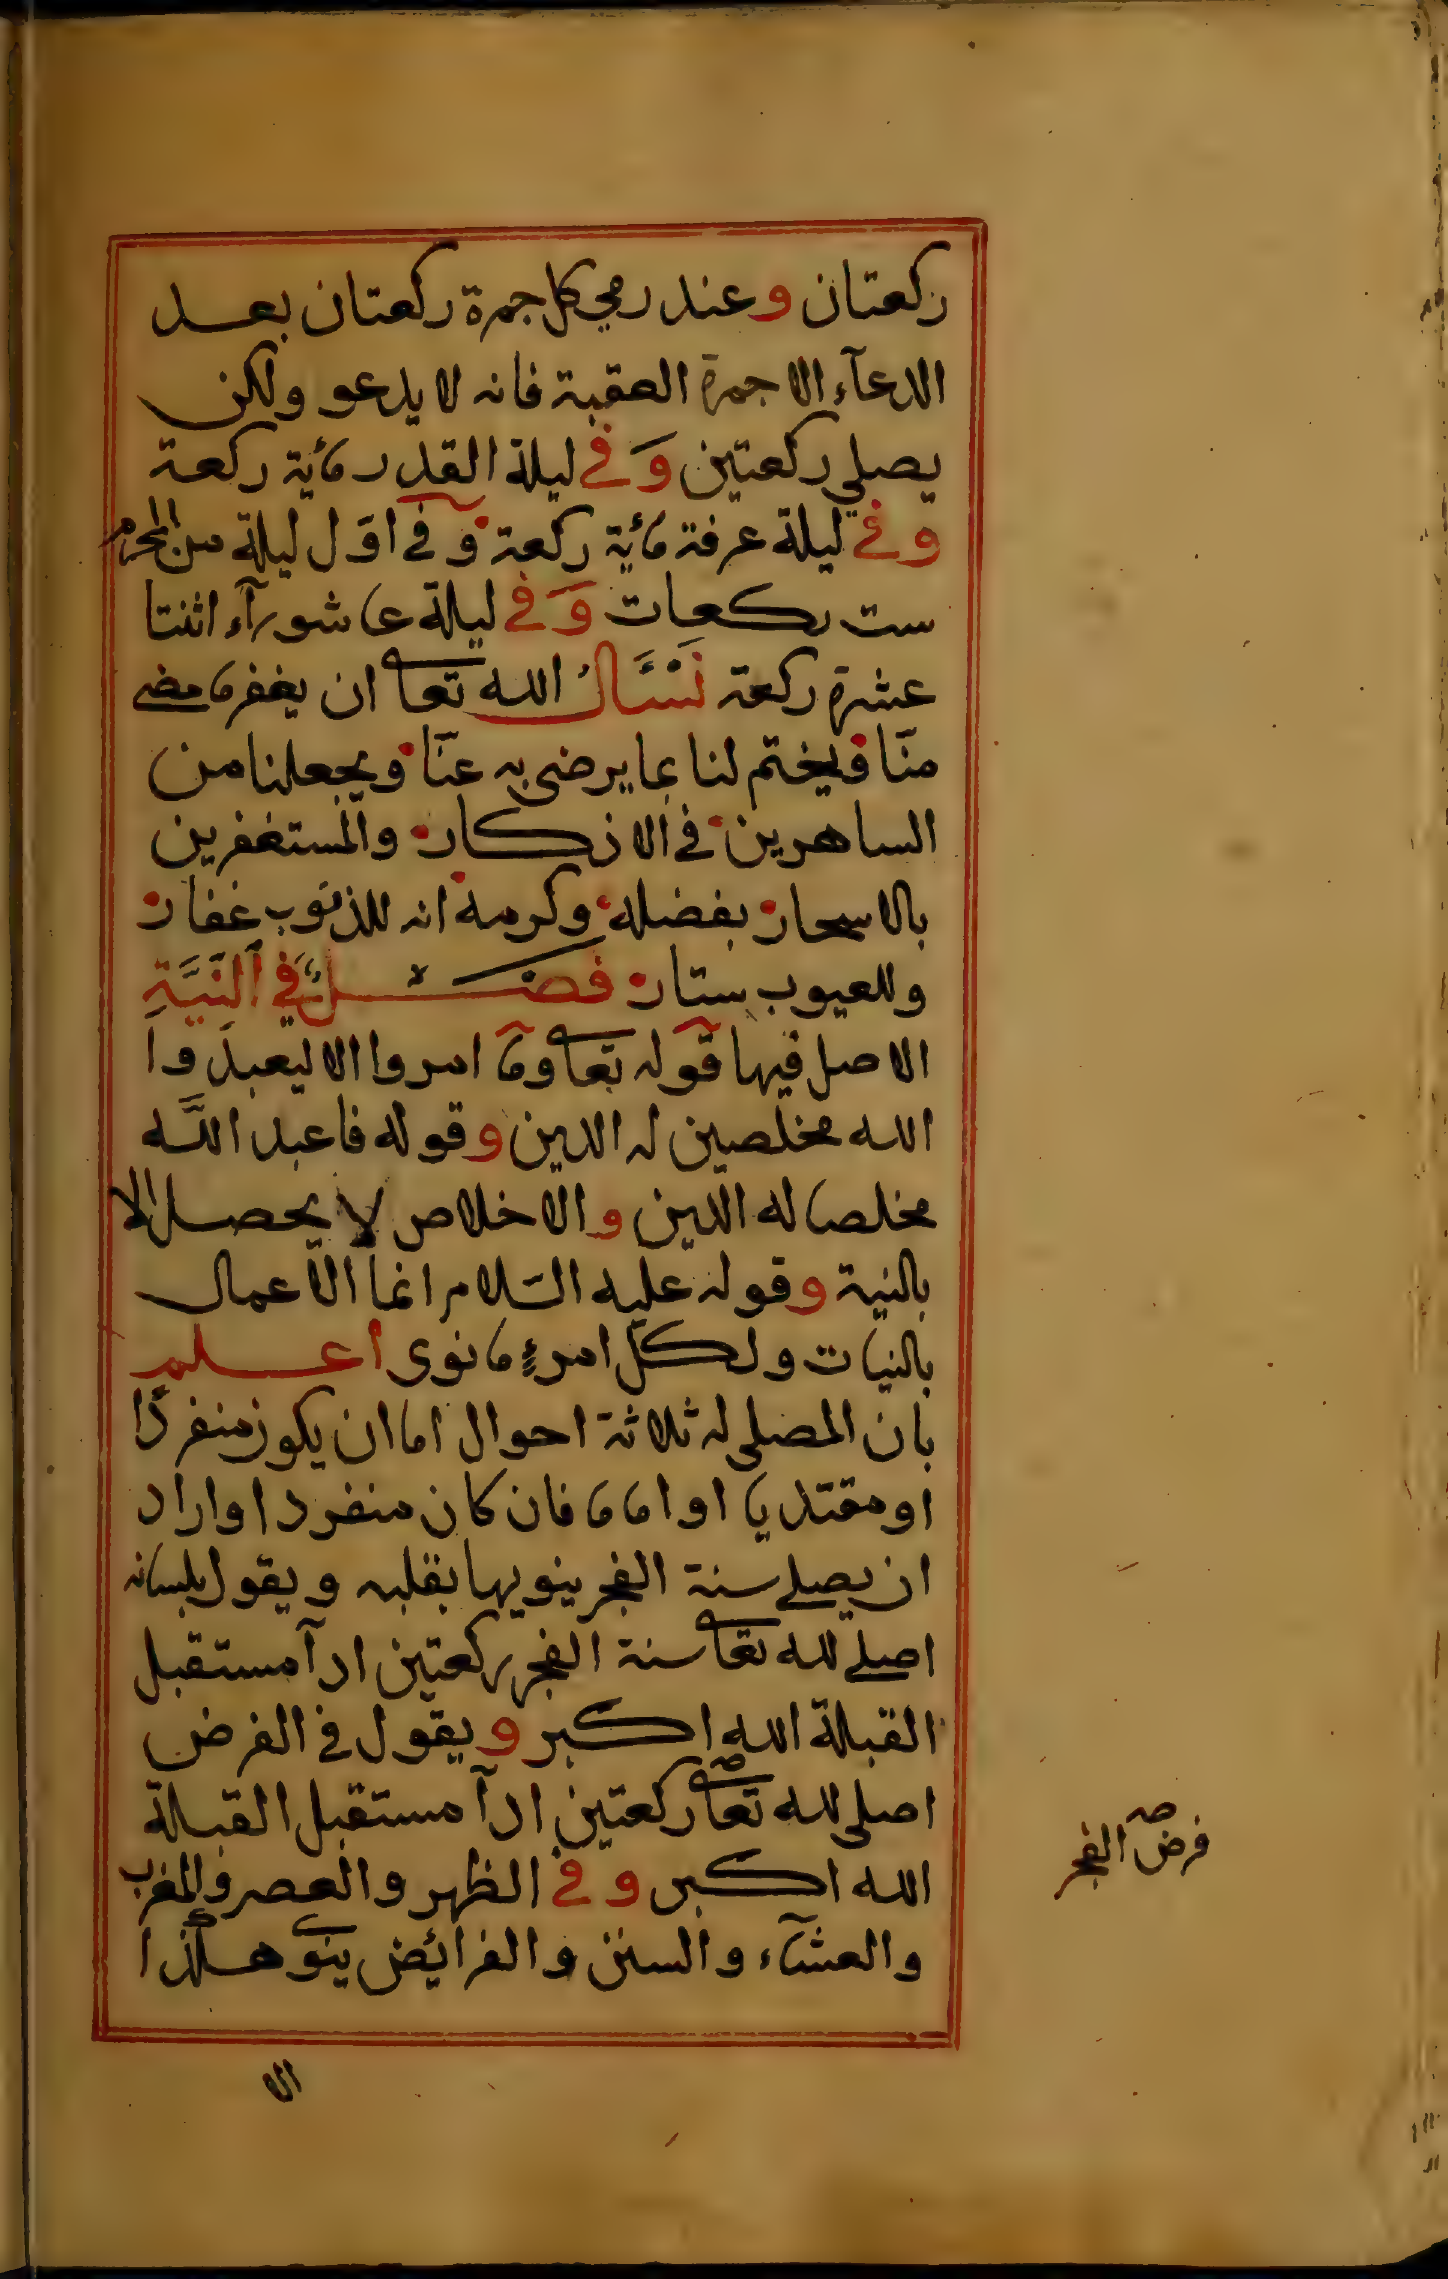 ركعتان وعند رمي كل جمرة ركعتان بعد
الدعآء الا جمرة العقبة فانه لا يدعو ولكن
يصلي ركعتين وَفي ليلة القدر مائة ركعة
وفي ليلة عرفة مائة ركعة وفي اوّل ليلة من المحرم
ست ركعات وَفي ليلة عاشورآء اثنتا
عشرة ركعة نَسْئَالُ الله تعا ان يغفر ما مضى
منّا ويختم لنا بما يرضى به عنّا ويجعلنا من
الساهرين في الاذكار والمستغفرين
بالاسحار بفضله وكرمه انه للذنوب غفار
وللعيوب ستار فصل في النيّة
الاصل فيها قوله تعا وما امروا الا ليعبدوا
الله مخلصين له الدين وقوله فاعبد اللّه
مخلصا له الدين والاخلاص لا يحصل الا
بالنية وقوله عليه السّلام انما الاعمال
بالنيات ولكل امرءٍ ما نوى اعلم
بان المصلى له ثلاثة احوال اما ان يكون منفردًا
او مقتديا او اماما فان كان منفردا واراد
ان يصلے سنة الفجر ينويها بقلبه ويقول بلسانه
اصلے لله تعا سنة الفجر ركعتين ادآ مستقبل
القبلة الله اكبر ويقول في الفرض
اصلى لله تعا ركعتين ادآ مستقبل القبلة
الله اكبر وفي الظهر والعصر والمغرب
والعشآء والسنن والفرائض ينوي هكذا
فرض الفجر صح
الا